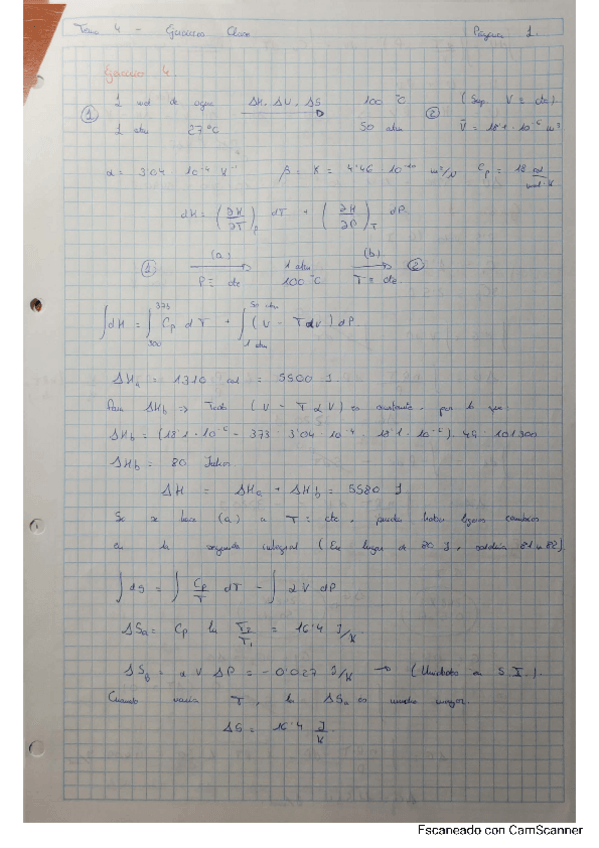 Tema 4 - Ejercicios Clase Página 1.
Ejercicio 4.
① 1 mol de agua ΔH, ΔU, ΔS 100 ºC ② (Sup. V = cte)
1 atm 27ºC 50 atm V̄ = 18'1 · 10⁻⁶ m³
α = 3'04 · 10⁻⁴ K⁻¹ β = K = 4'46 10⁻¹⁰ m²/N Cp = 18 cal/mol·K
dH = (∂H/∂T)_P dT + (∂H/∂P)_T dP
① (a) P = cte 1 atm 100ºC (b) T = cte ②
∫dH = ∫₃₀₀³⁷³ Cp dT + ∫_{1 atm}^{50 atm} (V - TαV) dP.
ΔHa = 1310 cal = 5500 J.
Para ΔHb ⇒ Todo (V - TαV) es constante, por lo que:
ΔHb = (18'1 · 10⁻⁶ - 373 · 3'04 10⁻⁴ · 18'1 · 10⁻⁶) · 49 · 101300
ΔHb = 80 Julios.
ΔH = ΔHa + ΔHb = 5580 J
Se se hace (a) a T = cte, puede haber ligeros cambios
en la segunda integral (En lugar de 80 J, saldría 81 u 82).
∫dS = ∫ Cp/T dT - ∫ αV dP
ΔSa = Cp ln T₂/T₁ = 16'4 J/K.
ΔSb = α V ΔP = -0'027 J/K → (Unidades en S.I.).
Cuando varía T, la ΔSa es mucho mayor.
ΔS = 16'4 J/K.
Escaneado con CamScanner